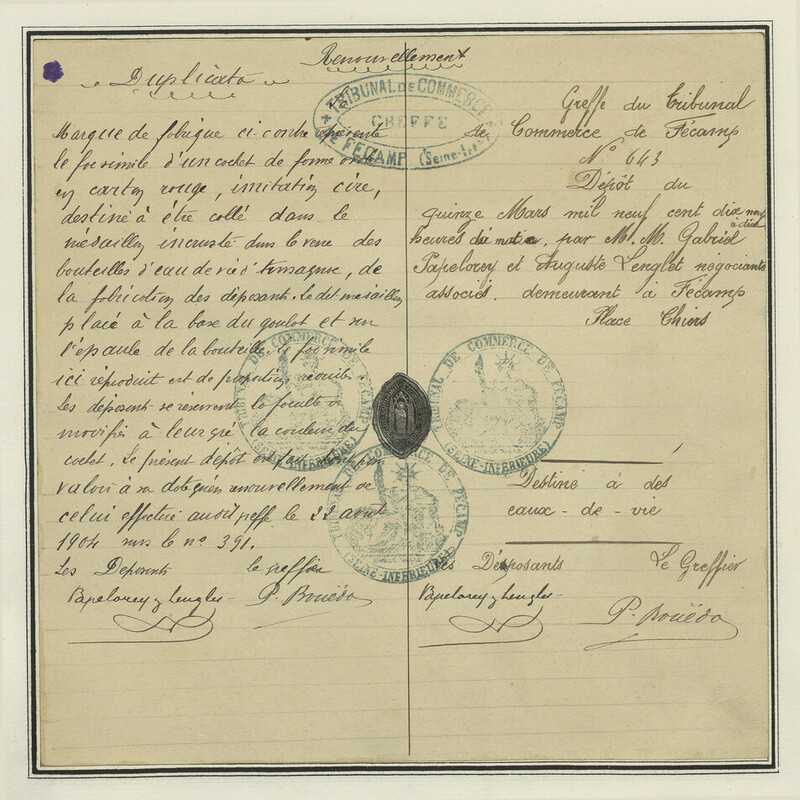 Renouvellement
Duplicata
TRIBUNAL DE COMMERCE
GREFFE
DE FÉCAMP (Seine-Infre)
Marque de fabrique ci-contre représente
le facsimile d'un cachet de forme ovale
en carton rouge, imitation cire,
destiné à être collé dans le
médaillon incrusté dans le verre des
bouteilles d'eau de vie d'Armagnac, de
la fabrication des déposants. Le dit médaillon
placé à la base du goulot et sur
l'épaule de la bouteille. Le facsimile
ici reproduit est de proportions réduites.
Les déposants se réservent la faculté de
modifier à leur gré la couleur du
cachet. Le présent dépôt est fait
valoir à sa date renouvellement de
celui effectué au dit greffe le 22 août
1904 sous le no 391.
Les Déposants le greffier
Papelorey & Lenglet P. Bouëda
Greffe du Tribunal
de Commerce de Fécamp
No 643
Dépôt du
quinze Mars mil neuf cent dix neuf
à dix
heures du matin, par M. M. Gabriel
Papelorey et Auguste Lenglet négociants
associés. demeurant à Fécamp
Place Thiers
TRIBUNAL DE COMMERCE DE FECAMP
(SEINE-INFÉRIEURE)
TRIBUNAL DE COMMERCE DE FECAMP
(SEINE-INFÉRIEURE)
TRIBUNAL DE COMMERCE DE FECAMP
(SEINE-INFÉRIEURE)
Destiné à des
eaux-de-vie
Les Désposants Le Greffier
Papelorey & Lenglet
P. Bouëda